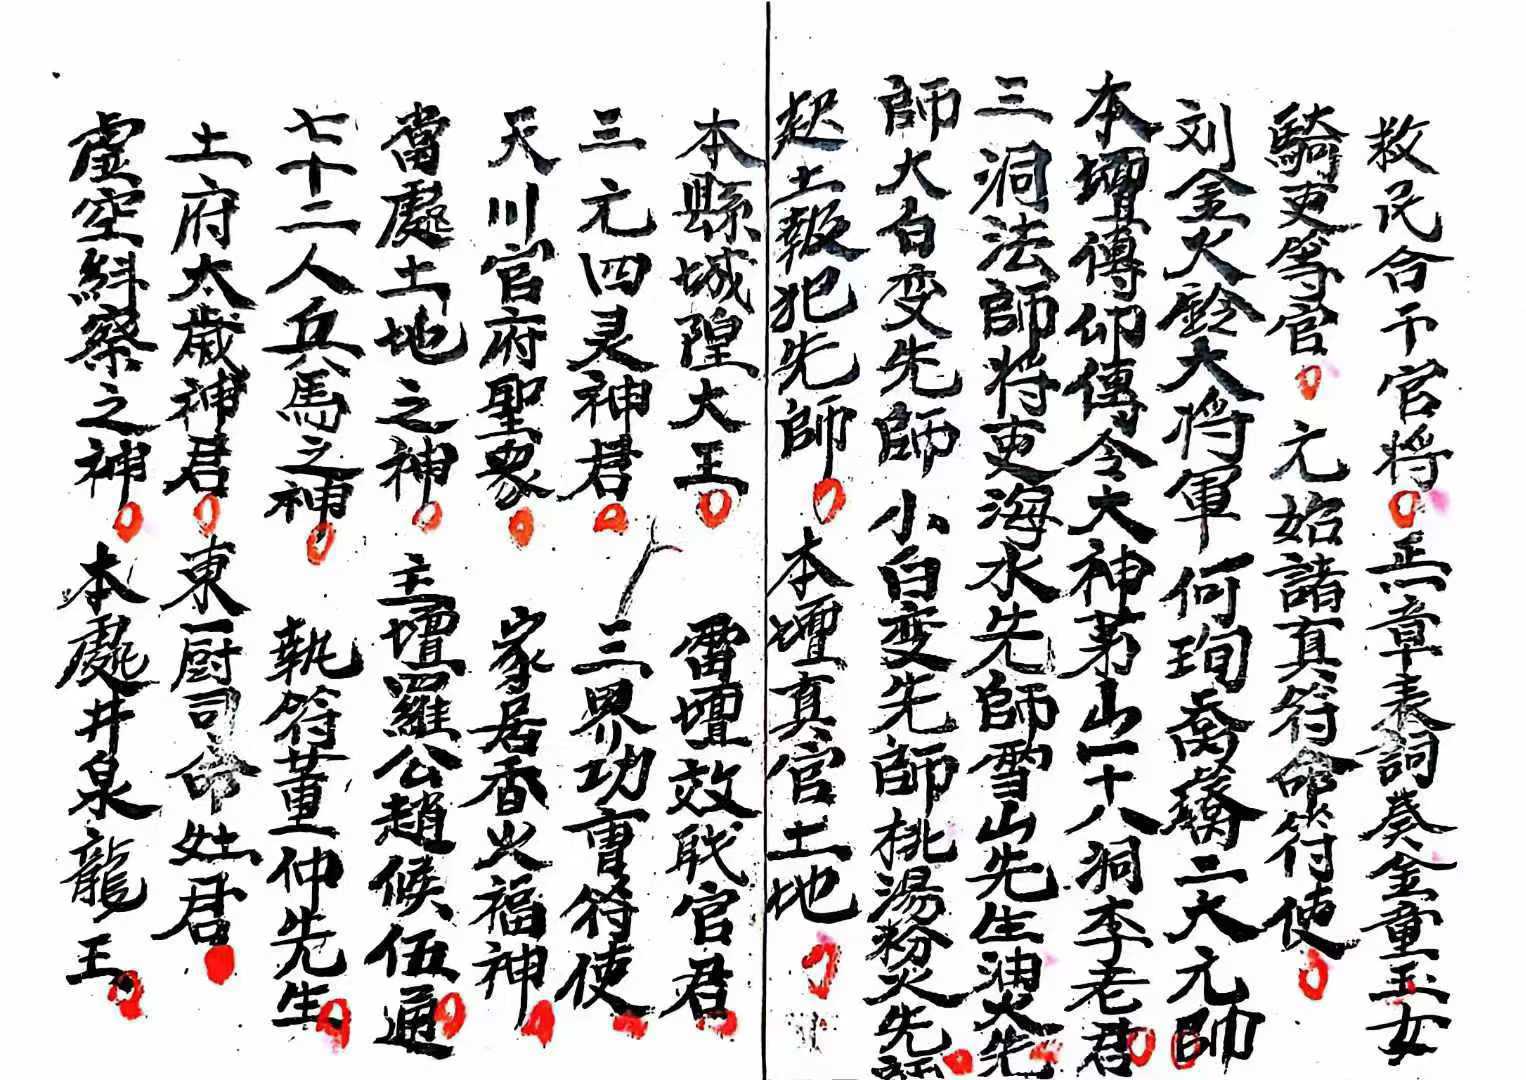 救民合干官将 焉章表詞癸金童玉女
騎吏等官 元始諸真符命符使
刘金火鈴大将軍何珣喬䕫二大元帥
本壇傳仰傳令大神茅山一十八洞李老君
三洞法師将吏海水先師雪山先生油火先
師大白变先師小白变先師桃湯粉火先師
起土報犯先師 本壇真官土地
本縣城隍大王 雷壇效职官君
三元四灵神君 三界功曹符使
天川官府聖眾 家居香火福神
當處土地之神 主壇羅公趙候伍通
七十二人兵馬之神 執符董仲先生
土府太歲神君 東厨司命灶君
虛空糾察之神 本處井泉龍王